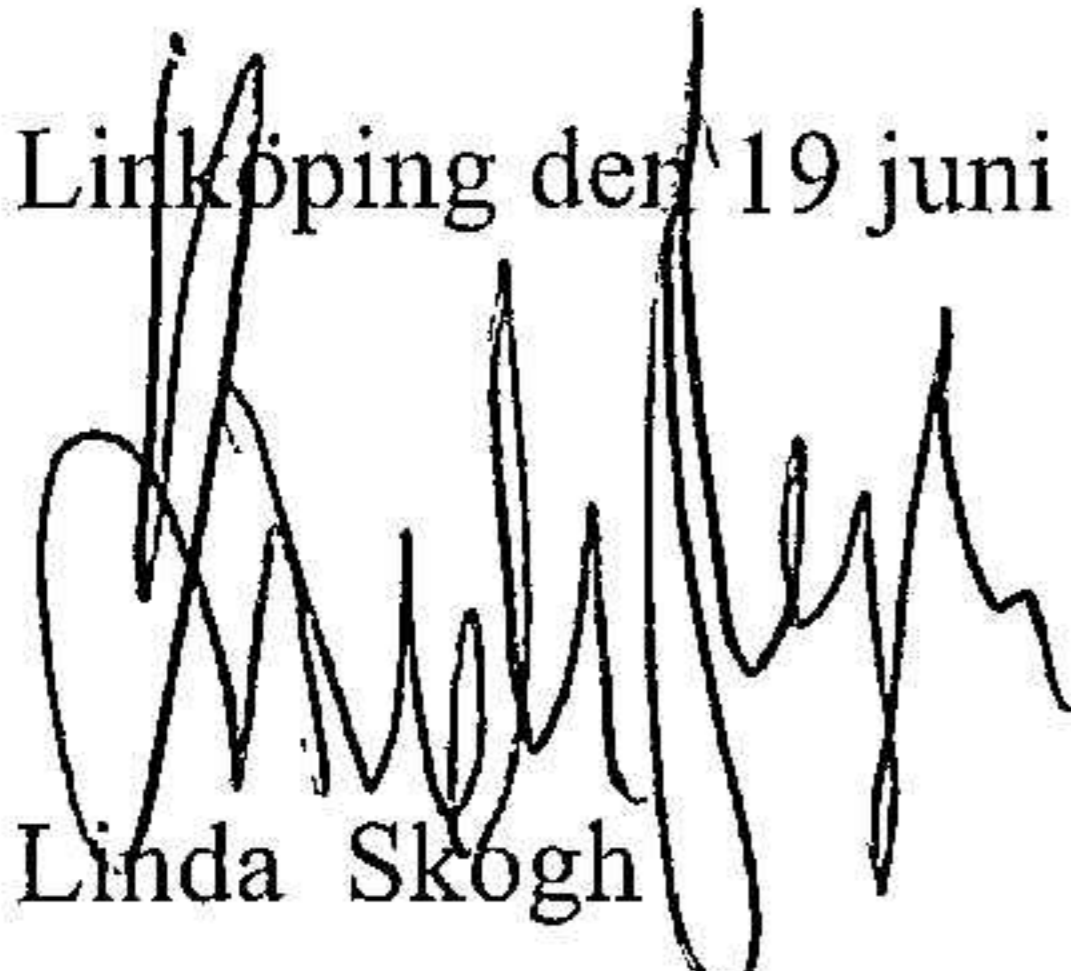 Linköping den 19 juni
Linda Skogh